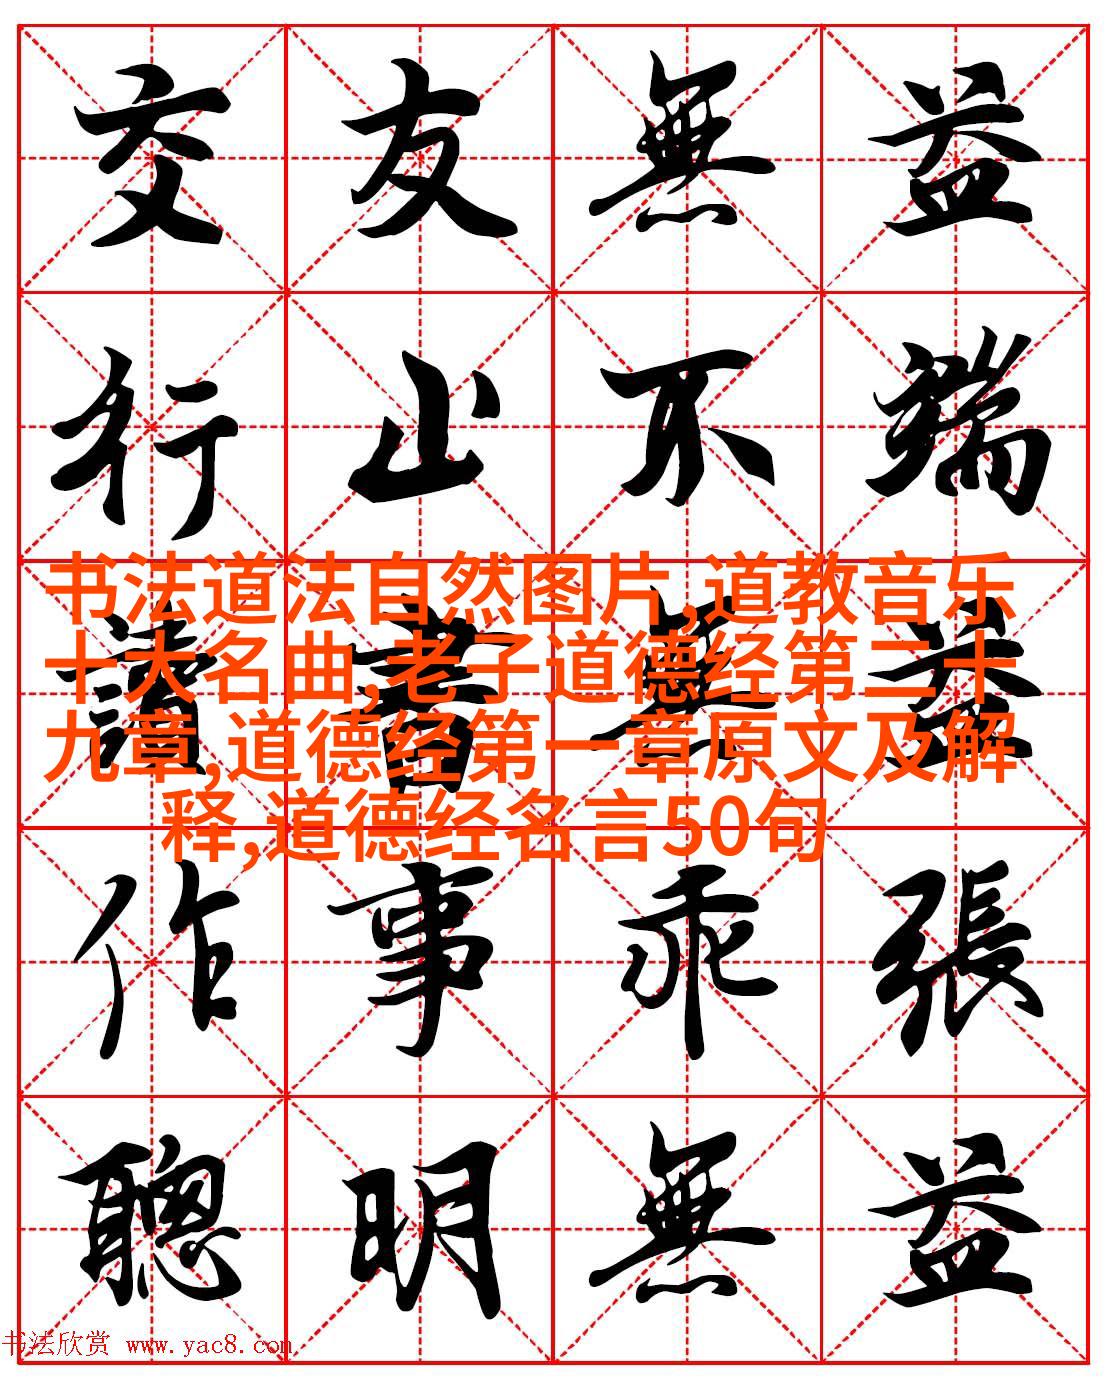 交友無益
行止不端
書法道法自然图片,道教音乐
十大名曲,老子道德经第二十
九章,道德经第一章原文及解
释,道德经名言50句
讀書無益
作事乖張
聰明無益
书法欣赏 www.yac8.com